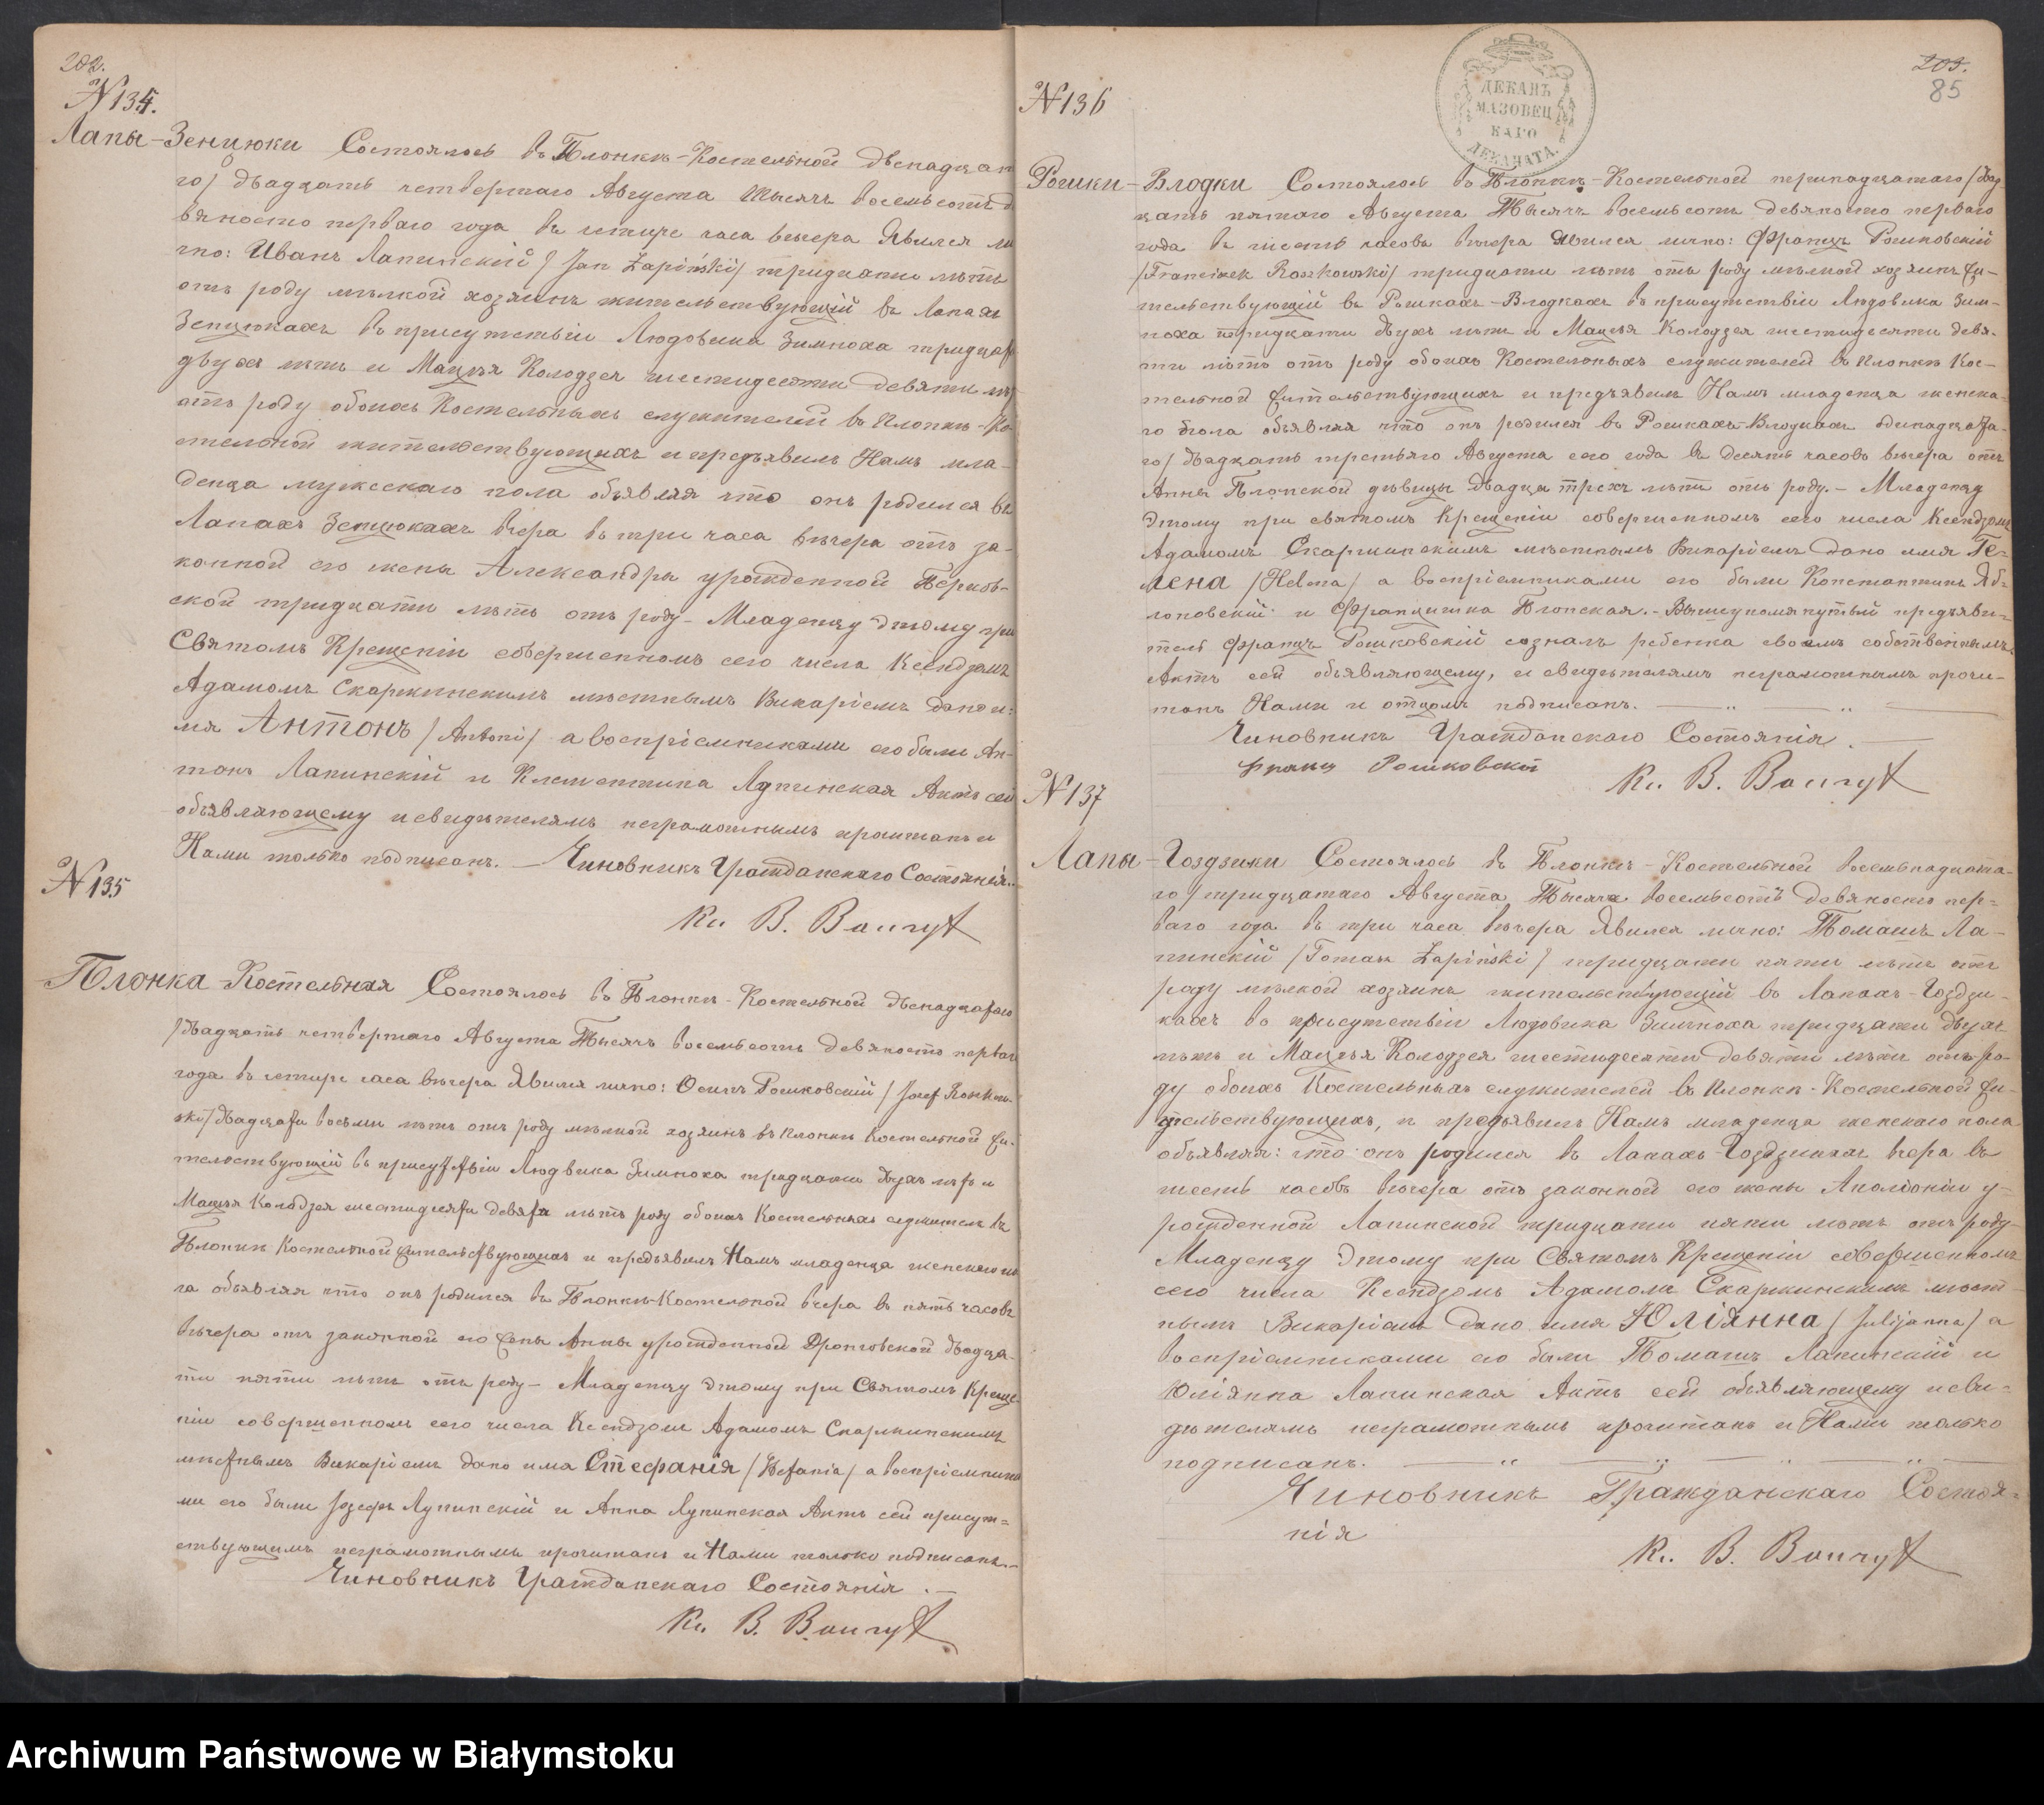 202.
N 134.
Лапы-Зенцюки Состоялось въ Плонкѣ-Костельной двѣнадцат
го/ двадцать четвертаго Августа тысяча восемьсотъ д
вяносто перваго года въ четыре часа вечера Явился ли
чно: Иванъ Лапинскій / Jan Łapiński/ тридцати лѣтъ
отъ роду мѣлкой хозяинъ жительствующій въ Лапахъ
Зенцюкахъ въ присутствіи Людовика Зимноха тридцат
двухъ лѣтъ и Мацѣя Колодзея шестидесяти девяти лѣт
отъ роду обоихъ Костельныхъ служителей въ Плонкѣ-Ко
стельной жительствующихъ и предъявилъ Намъ мла-
денца мужескаго пола объявляя что онъ родился въ
Лапахъ Зенцюкахъ вчера въ три часа вечера отъ за-
конной его жены Александры урожденной Перков-
ской тридцати лѣтъ отъ роду - Младенцу этому при
Святомъ Крещеніи совершенномъ сего числа Ксендзомъ
Адамомъ Скаржинскимъ мѣстнымъ Викаріемъ дано и:
мя Антонъ /Antoni/ а воспріемниками его были Ан-
тонъ Лапинскій и Клементина Лупинская Актъ сей
объявляющему и свидѣтелямъ неграмотнымъ прочитанъ и
Нами только подписанъ. — Чиновникъ Гражданскаго Состоянія.
Кс. В.
N 135
Плонка-Костельная Состоялось въ Плонкѣ-Костельной двѣнадцатаго
/двадцать четвертаго Августа Тысяча восемьсотъ девяносто перваго
года въ четыре часа вечера Явился лично: Осипъ Рошковскій / Józef Roszkow-
ski/ двадцати восьми лѣтъ отъ роду мѣлкой хозяинъ въ Плонкѣ Костельной жи-
тельствующій въ присутствіи Людвика Зимноха тридцати двухъ лѣтъ и
Мацѣя Колодзея шестидесяти девяти лѣтъ роду обоихъ Костельныхъ служителей въ
Плонкѣ Костельной жительствующихъ и предъявилъ Намъ младенца женскаго по
ла объявляя что онъ родился въ Плонкѣ-Костельной вчера въ пять часовъ
вечера отъ законной его жены Анны урожденной Дронговской двадца-
ти пяти лѣтъ отъ роду - Младенцу этому при Святомъ Креще
ніи совершенномъ сего числа Ксендзомъ Адамомъ Скаржинскимъ
мѣстнымъ Викаріемъ дано имя Стефанія /Stefania/ а воспріемника
ми его были Іозефъ Лупинскій и Анна Лупинская Актъ сей присут=
ствующимъ неграмотнымъ прочитанъ и Нами только подписанъ.—
Чиновникъ Гражданскаго Состоянія . —
Кс. В.
ДЕКАНЪ
МАЗОВЕЦ
КАГО
ДЕКАНАТА.
203.
85
N 136
Рошки-Влодки Состоялось въ Плонкѣ-Костельной тринадцатаго /двад-
цать пятаго Августа Тысяча восемьсотъ девяносто перваго
года въ шесть часовъ вечера Явился лично: Францъ Рошковскій
/Franciszek Roszkowski/ тридцати лѣтъ отъ роду мѣлкой хозяинъ жи-
тельствующій въ Рошкахъ-Влодкахъ въ присутствіи Людовика Зим-
ноха тридцати двухъ лѣтъ и Мацѣя Колодзея шестидесяти девя-
ти лѣтъ отъ роду обоихъ Костельныхъ служителей въ Плонкѣ Кос-
тельной жительствующихъ и предъявилъ Намъ младенца женска-
го пола объявляя что онъ родился въ Рошкахъ-Влодкахъ одинадцата-
го/ двадцать третьяго Августа сего года въ десять часовъ вечера отъ
Анны Плонской дѣвицы двадца трехъ лѣтъ отъ роду. — Младенцу
этому при святомъ Крещеніи совершенномъ сего числа Ксендзомъ
Адамомъ Скаржинскимъ мѣстнымъ Викаріемъ дано имя Ге=
лена /Helena/ а воспріемниками его были Константинъ Яб-
лоновскій и Францишка Плонская. - Вышеупомянутый предъяви-
тель Францъ Рошковскій созналъ ребенка своимъ собственнымъ.
Актъ сей объявляющему, и свидѣтелямъ неграмотнымъ прочи-
танъ Нами и отцомъ подписанъ. —
Чиновникъ Гражданскаго Состоянія. —
Францъ Рошковскій
Кс. В.
N 137
Лапы-Гоздзики Состоялось въ Плонкѣ-Костельной восемьнадцата-
го/ тридцатаго Августа Тысяча восемьсотъ девяносто пер=
ваго года въ три часа вечера Явился лично: Томашъ Ла-
пинскій /Tomasz Łapiński/ тридцати пяти лѣтъ отъ
роду мѣлкой хозяинъ жительствующій въ Лапахъ-Гоздзи-
кахъ въ присутствіи Людовика Зимноха тридцати двухъ
лѣтъ и Мацѣя Колодзея шестидесяти девяти лѣтъ отъ ро-
ду обоихъ Костельныхъ служителей въ Плонкѣ-Костельной жи-
тельствующихъ, и предъявилъ Намъ младенца женскаго пола
объявляя: что онъ родился въ Лапахъ-Гоздзикахъ вчера въ
шесть часовъ вечера отъ законной его жены Аполіоніи у-
рожденной Лапинской тридцати пяти лѣтъ отъ роду-
Младенцу этому при Святомъ Крещеніи совершенномъ
сего числа Ксендзомъ Адамомъ Скаржинскимъ мѣст-
нымъ Викаріемъ дано имя Юліянна /Julijanna/ а
воспріемниками его были Томашъ Лапинскій и
Юліянна Лапинская Актъ сей объявляющему и сви=
дѣтелямъ неграмотнымъ прочитанъ и Нами только
подписанъ. —
Чиновникъ Гражданскаго Состоя=
нія
Кс. В.
Archiwum Państwowe w Białymstoku